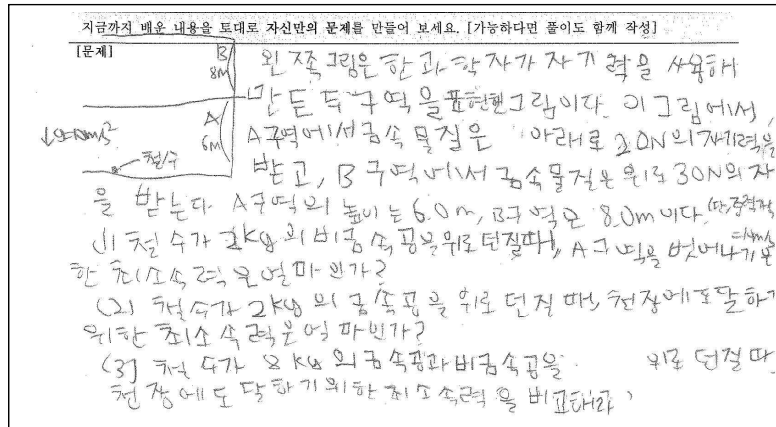 지금까지 배운 내용을 토대로 자신만의 문제를 만들어 보세요. [가능하다면 풀이도 함께 작성]
[문제]
B
8m
A
6m
철수
왼쪽 그림은 한 과학자가 자기력을 사용해
만든 두 구역을 표현한 그림이다. 이 그림에서,
A구역에서 금속 물질은 아래로 20N의 자기력을
받고, B구역에서 금속물질은 위로 30N의 자
을 받는다. A구역의 높이는 6.0m, B구역은 8.0m이다.
(1) 철수가 2kg의 비금속공을 위로 던질때, A구역을 벗어나기 위
한 최소속력은 얼마인가?
(2) 철수가 2kg의 금속공을 위로 던질 때, 천장에 도달하기
위한 최소속력은 얼마인가?
(3) 철수가 8kg의 금속공과 비금속공을 위로 던질 때
천장에 도달하기위한 최소속력을 비교해라.